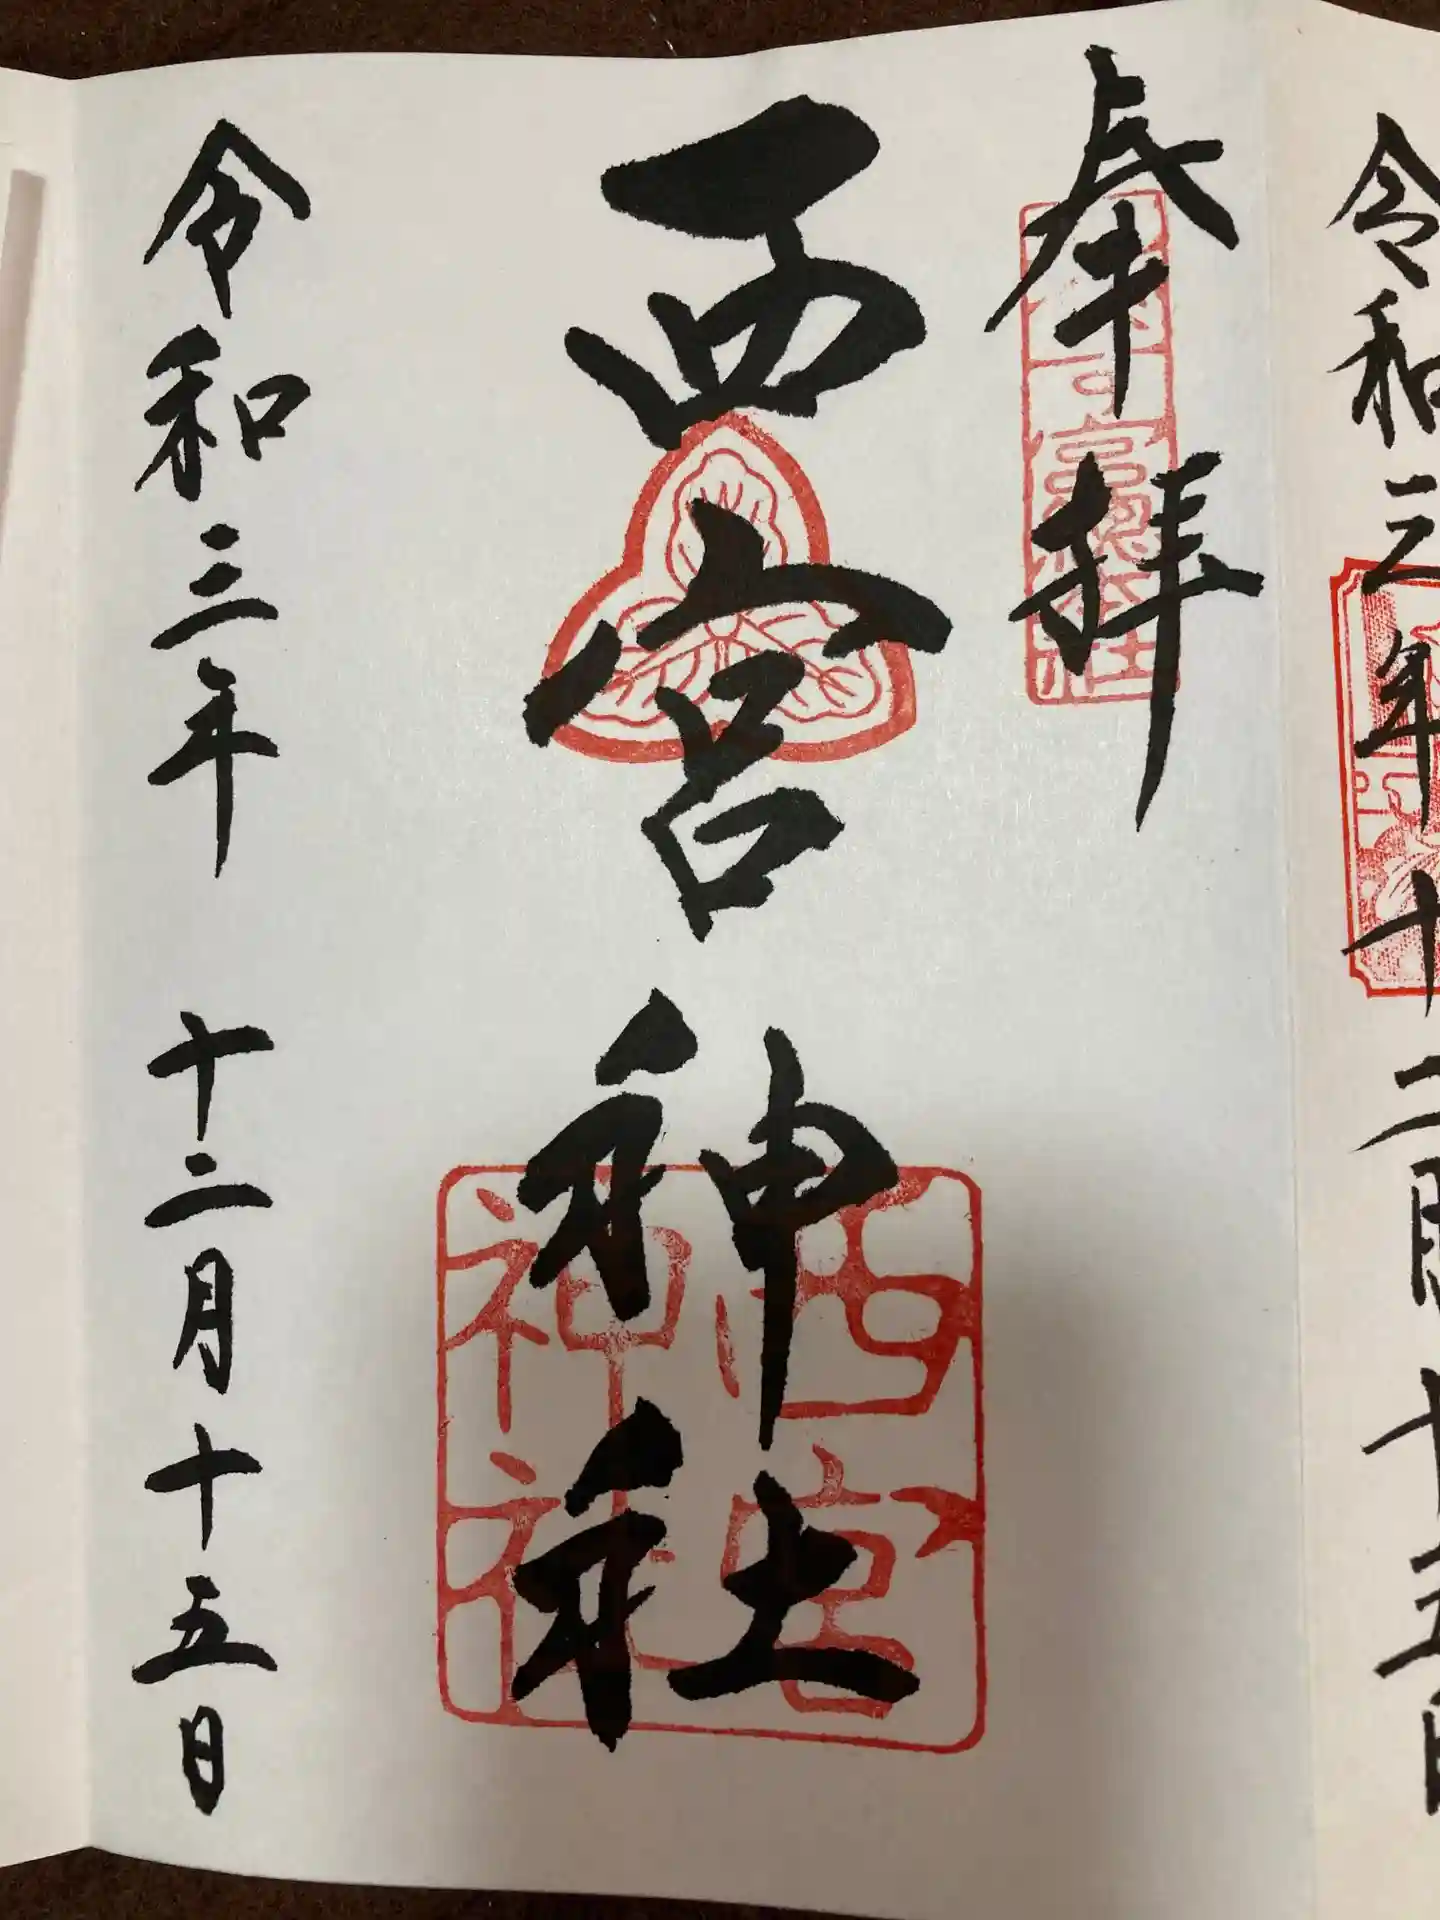 令和三年十二月十五日
奉拝
西宮神社
西宮神社
令和三年 十二月十五日